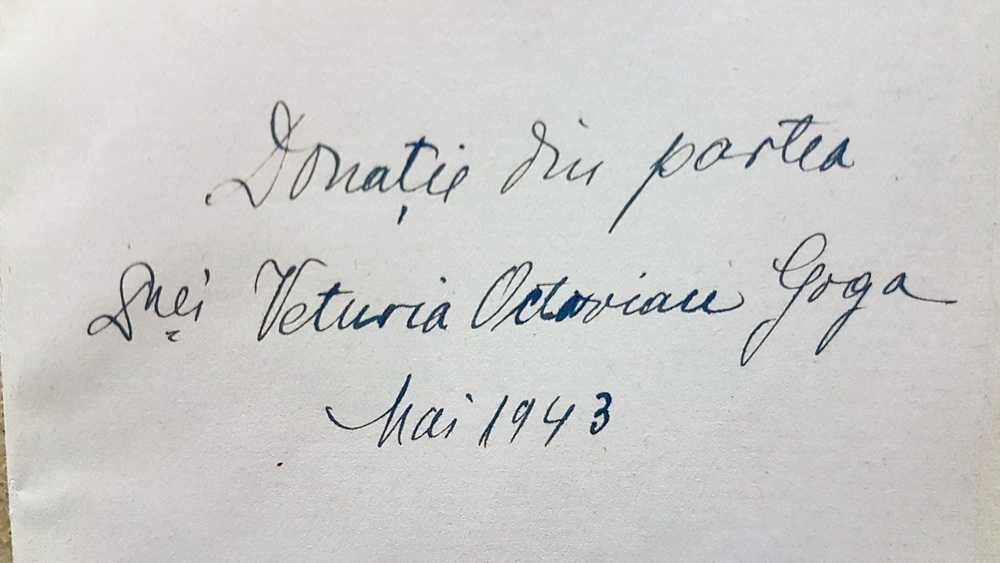 Donație din partea
Dnei Veturia Octavian Goga
Mai 1943